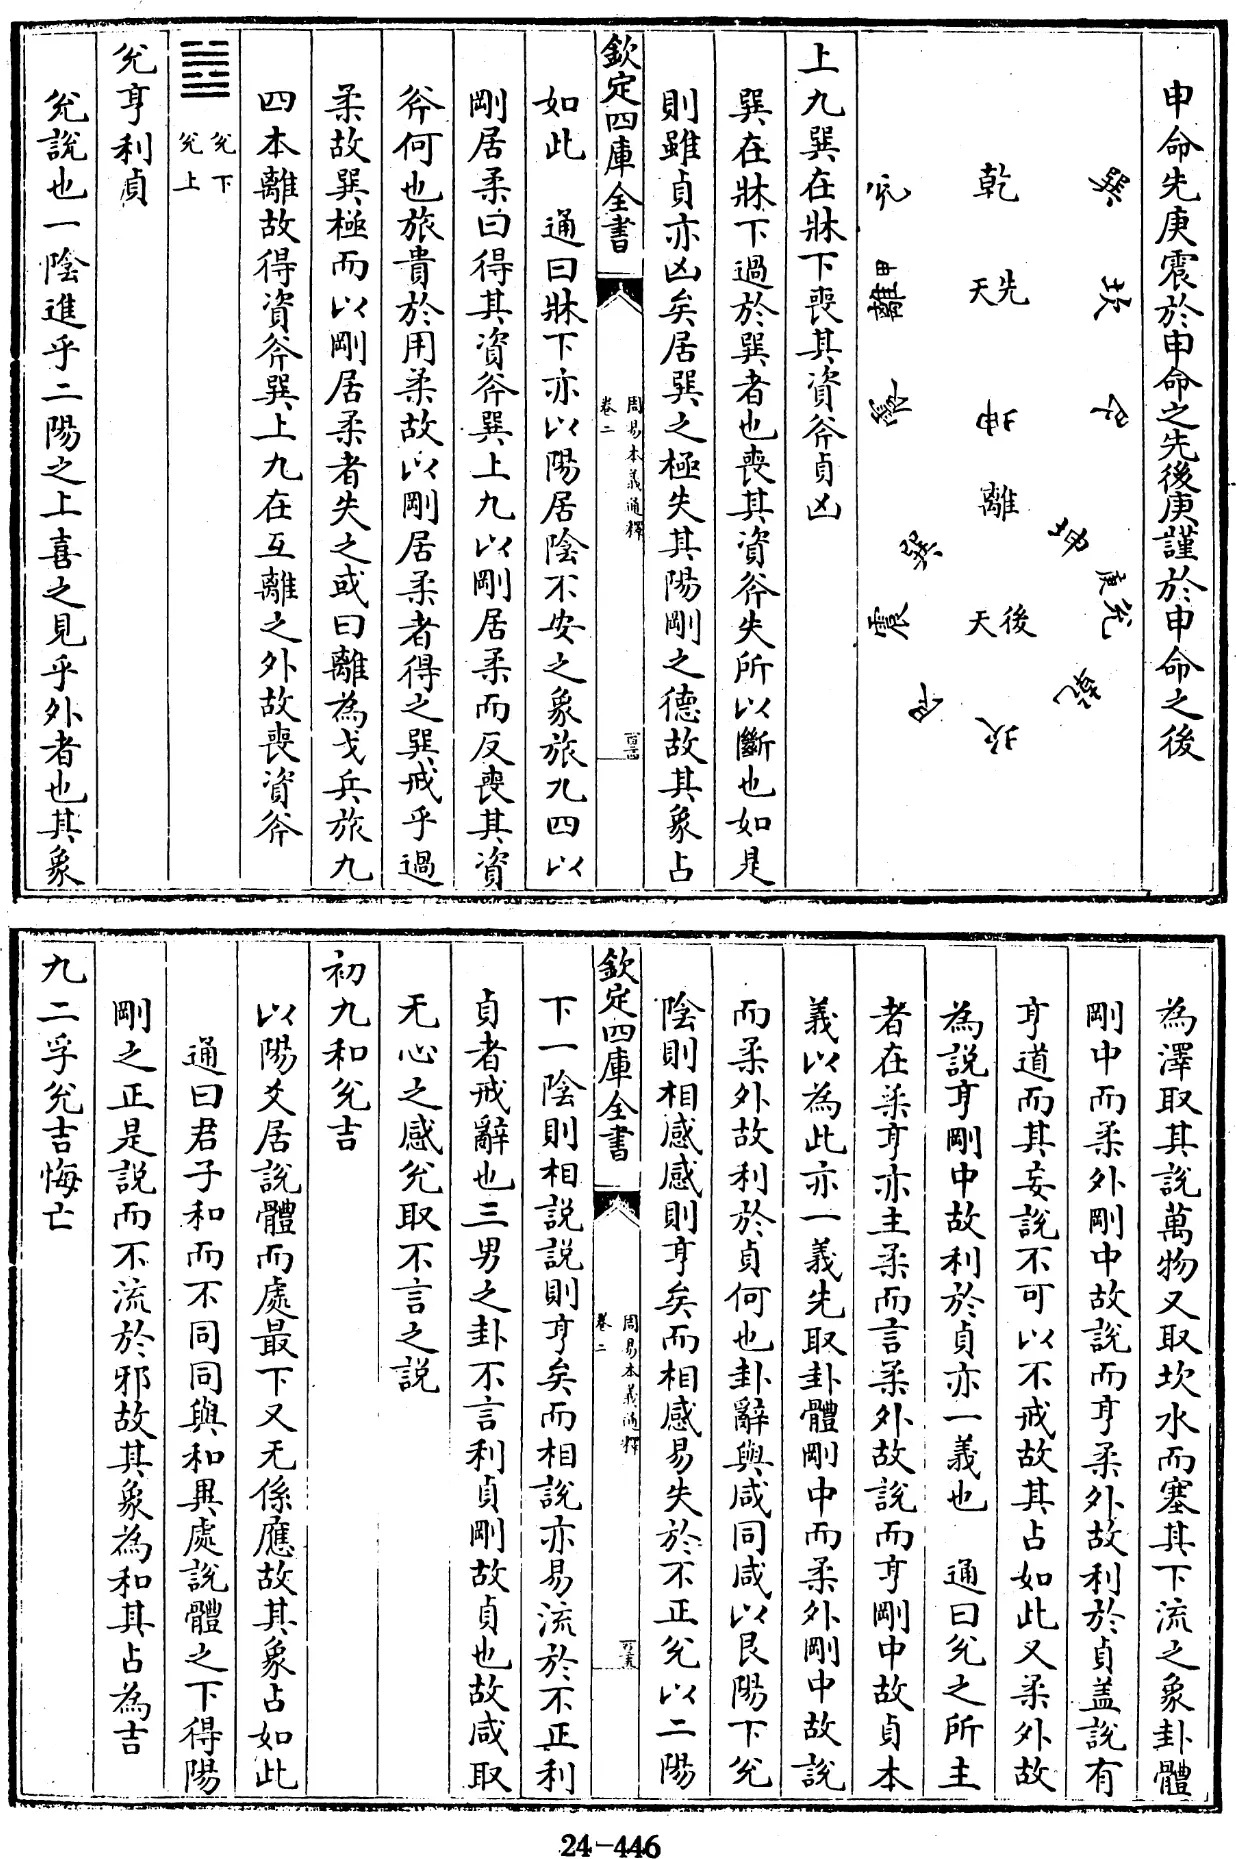 申命先庚震於申命之先後庚謹於申命之後
巽
坎
艮
坤
乾
先天
兌
離
甲
震
離
後天
坎
坤
兌
庚
乾
巽
震
艮
上九巽在牀下喪其資斧貞凶
巽在牀下過於巽者也喪其資斧失所以斷也如是
則雖貞亦凶矣居巽之極失其陽剛之德故其象占
欽定四庫全書
周易本義通釋
卷二
如此 通曰牀下亦以陽居陰不安之象旅九四以
剛居柔曰得其資斧巽上九以剛居柔而反喪其資
斧何也旅貴於用柔故以剛居柔者得之巽戒乎過
柔故巽極而以剛居柔者失之或曰離為戈兵旅九
四本離故得資斧巽上九在互離之外故喪資斧
兌下
兌上
兌亨利貞
兌說也一陰進乎二陽之上喜之見乎外者也其象
為澤取其說萬物又取坎水而塞其下流之象卦體
剛中而柔外剛中故說而亨柔外故利於貞蓋說有
亨道而其妄說不可以不戒故其占如此又柔外故
為說亨剛中故利於貞亦一義也 通曰兌之所主
者在柔亨亦主柔而言柔外故說而亨剛中故貞本
義以為此亦一義先取卦體剛中而柔外剛中故說
而柔外故利於貞何也卦辭與咸同咸以艮陽下兌
陰則相感感則亨矣而相感易失於不正兌以二陽
欽定四庫全書
周易本義通釋
卷二
下一陰則相說說則亨矣而相說亦易流於不正利
貞者戒辭也三男之卦不言利貞剛故貞也故咸取
无心之感兌取不言之說
初九和兌吉
以陽爻居說體而處最下又无係應故其象占如此
通曰君子和而不同同與和異處說體之下得陽
剛之正是說而不流於邪故其象為和其占為吉
九二孚兌吉悔亡
24-446